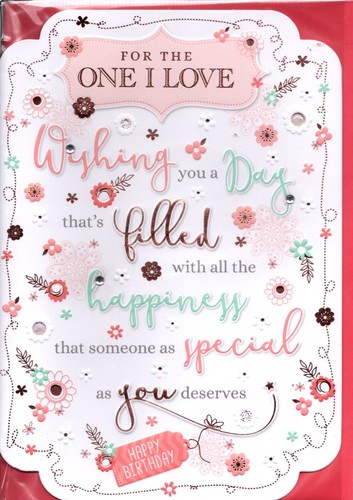 FOR THE
ONE I LOVE
Wishing you a Day
that's filled
with all the
happiness
that someone as special
as you deserves
HAPPY
BIRTHDAY